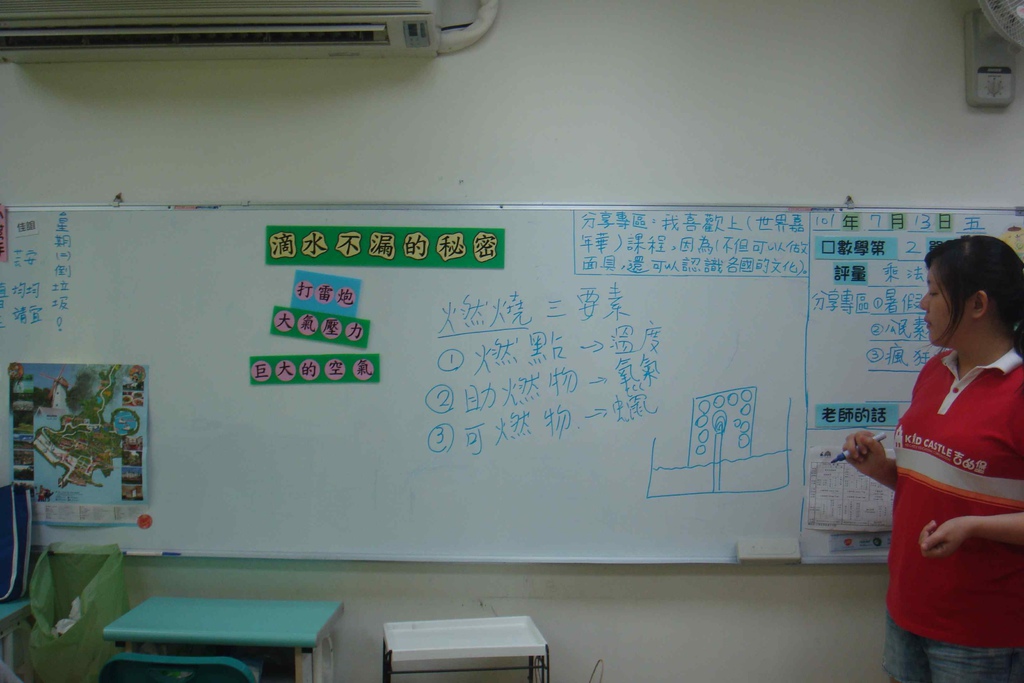 滴水不漏的秘密
打雷炮
大氣壓力
巨大的空氣
燃燒三要素
① 燃點→溫度
② 助燃物→氧氣
③ 可燃物→蠟
分享專區：我喜歡上（世界嘉
年華）課程，因為（不但可以做
面具，還可以認識各國的文化）。
101年7月13日五
口數學第2
評量 乘法
分享專區①暑假
②
③瘋狂
老師的話
KID CASTLE 吉的堡
星期四倒垃圾。
佳喻
均均
靖宜